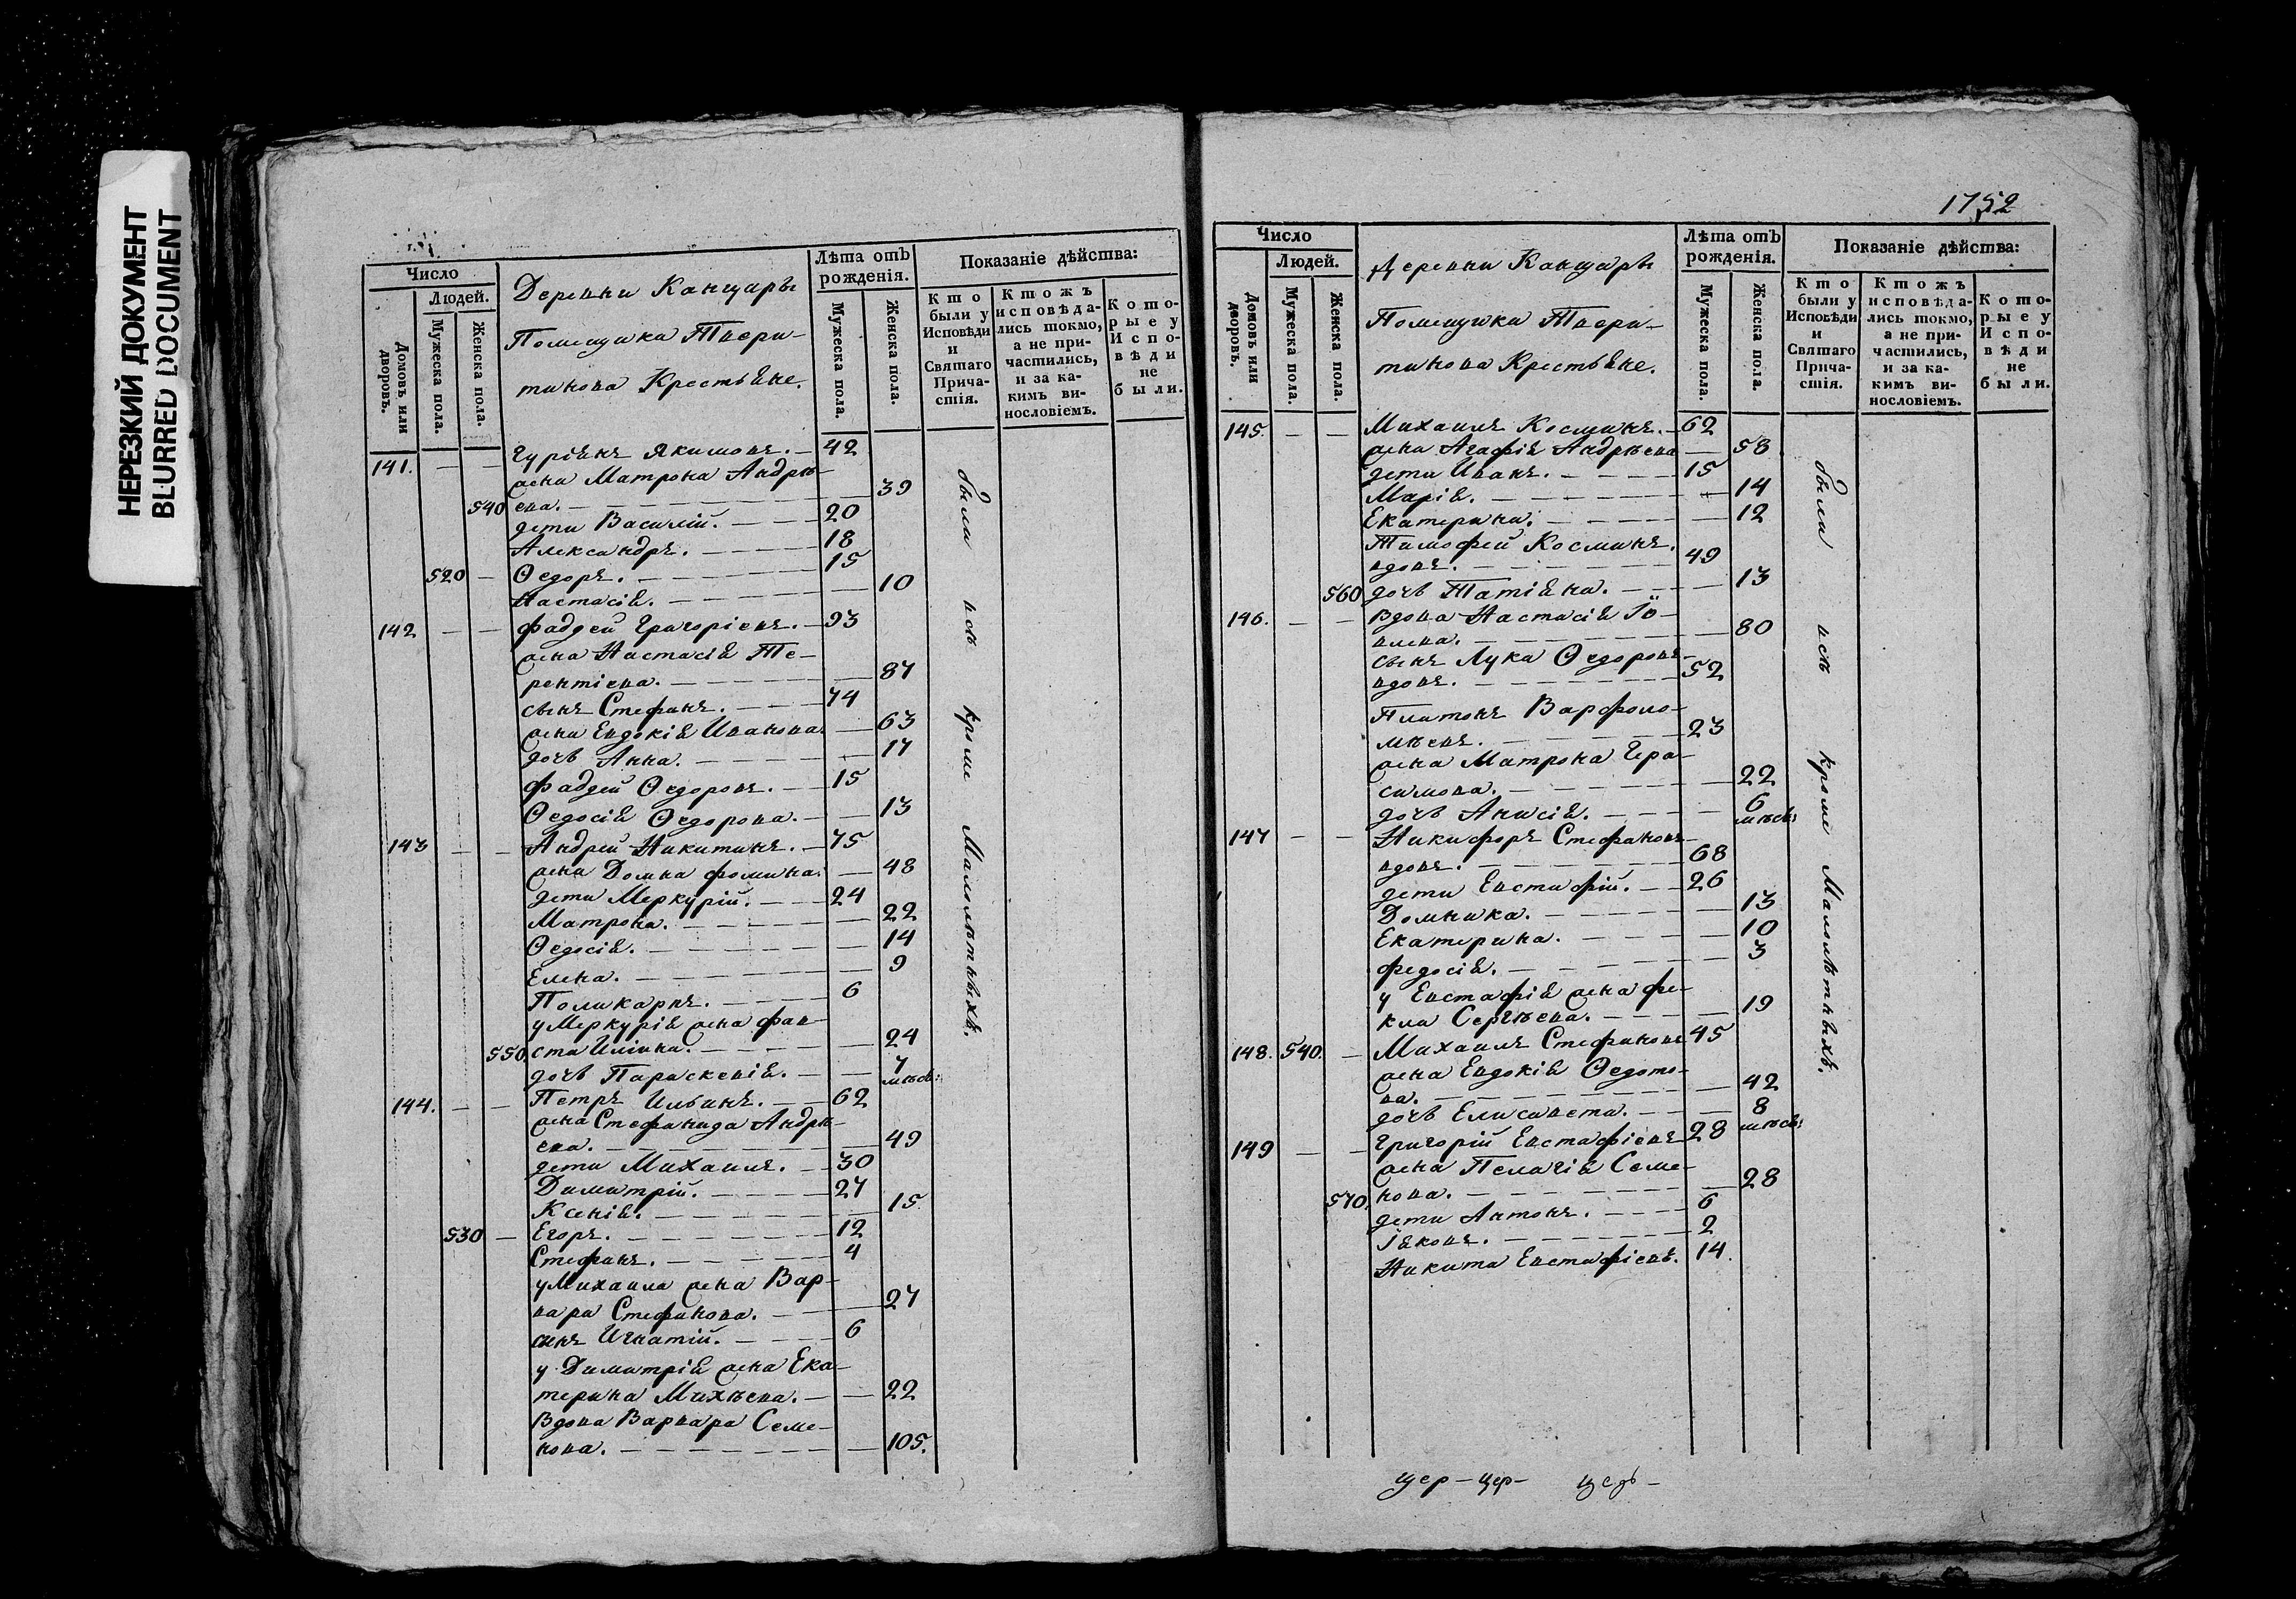 НЕРЕЗКИЙ ДОКУМЕНТ
BLURRED DOCUMENT
Число
Людей.
Домовъ или дворовъ.
Мужеска пола.
Женска пола.
Деревни Канцары
Помещика Твери-
тинова Крестьяне.
Лѣта отъ рожденія.
Мужеска пола.
Женска пола.
Показаніе дѣйства:
Кто были у Исповѣди и Святаго Прича-стія.
Ктожъ исповѣда-лись токмо, а не при-частились, и за ка-кимъ ви-нословіемъ.
Кото-рые у Испо-вѣди не были.
141. — — Гуріянъ Якимовъ. — 42
жена Матрона Андрѣ-
540 ева. — 39
дети Василій. — 20
Александръ. — 18
520 — Ѳедоръ. — 15
Настасія. — 10
142 — — Фаддей Григоріевъ. — 93
жена Настасія Те-
рентіева. — 87
сынъ Стефанъ. — 74
жена Евдокія Иванова. — 63
дочь Анна. — 17
Фаддей Ѳедоровъ. — 15
Ѳедосія Ѳедорова. — 13
143 — — Андрей Никитинъ. — 75
жена Домна Фомина. — 48
дети Меркурій. — 24
Матрона. — 22
Ѳедосія. — 14
Елена. — 9
Поликарпъ. — 6
у Меркурія жена Фав-
550 ста Иліина. — 24
дочь Параскевія. — 7 мѣсяц:
144. — — Петръ Ильинъ. — 62
жена Стефанида Андрѣ-
ева. — 49
дети Михаилъ. — 30
Димитрій. — 27
Ксенія. — 15
530 — Егоръ. — 12
Стефанъ. — 4
у Михаила жена Вар-
вара Стефанова. — 27
сынъ Игнатій. — 6
у Димитрія жена Ека-
терина Михѣева. — 22
Вдова Варвара Семе-
нова. — 105.
были всѣ кроме Малолѣтныхъ.
1752
Число
Людей.
Домовъ или дворовъ.
Мужеска пола.
Женска пола.
Деревни Канцары
Помещика Твери-
тинова Крестьяне.
Лѣта отъ рожденія.
Мужеска пола.
Женска пола.
Показаніе дѣйства:
Кто были у Исповѣди и Святаго Прича-стія.
Ктожъ исповѣда-лись токмо, а не при-частились, и за ка-кимъ ви-нословіемъ.
Кото-рые у Испо-вѣди не были.
145. — — Михаилъ Косминъ. — 62
жена Агафія Андрѣева — 58
дети Иванъ. — 15
Марія. — 14
Екатерина. — 12
Тимофей Косминъ.
вдовъ. — 49
560 дочь Татіяна. — 13
146. — — Вдова Настасія Іо-
влева. — 80
сынъ Лука Ѳедоровъ
вдовъ. — 52
Платонъ Варфоло-
мѣевъ. — 23
жена Матрона Гера-
симова. — 22
дочь Анисія. — 6 мѣсяц:
147 — — Никифоръ Стефановъ
вдовъ. — 68
дети Евстафій. — 26
Домника. — 13
Екатерина. — 10
Федосія. — 3
у Евстафія жена Фе-
кла Сергѣева. — 19
148. 540. — Михаилъ Стефановъ 45
жена Евдокія Ѳедото-
ва. — 42
дочь Елисавета. — 8 мѣсяц:
149 — — Григорій Евстафіевъ 28
жена Пелагія Семе-
570 нова. — 28
дети Антонъ. — 6
Іяковъ. — 2
Никита Евстафіевъ. 14.
были всѣ кроме Малолѣтныхъ.